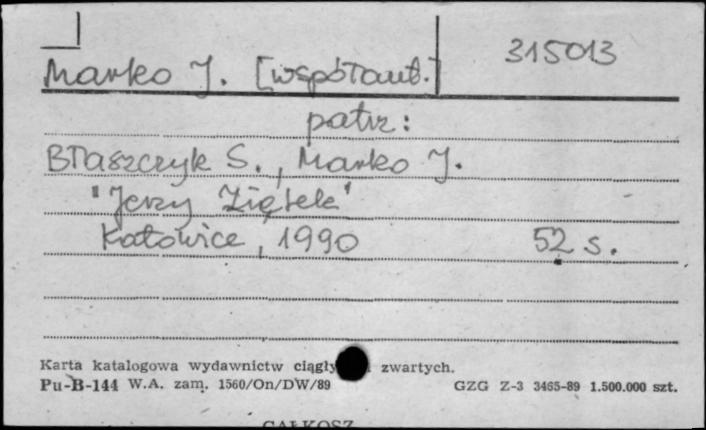 Marko J. [współaut.] 315013
patrz:
Błaszczyk S., Marko J.
"Jerzy Ziętek"
Katowice, 1990 52 s.
Karta katalogowa wydawnictw zwartych.
Pu-B-144 W.A. zam. 1560/On/DW/89 GZG Z-3 3465-89 1.500.000 szt.